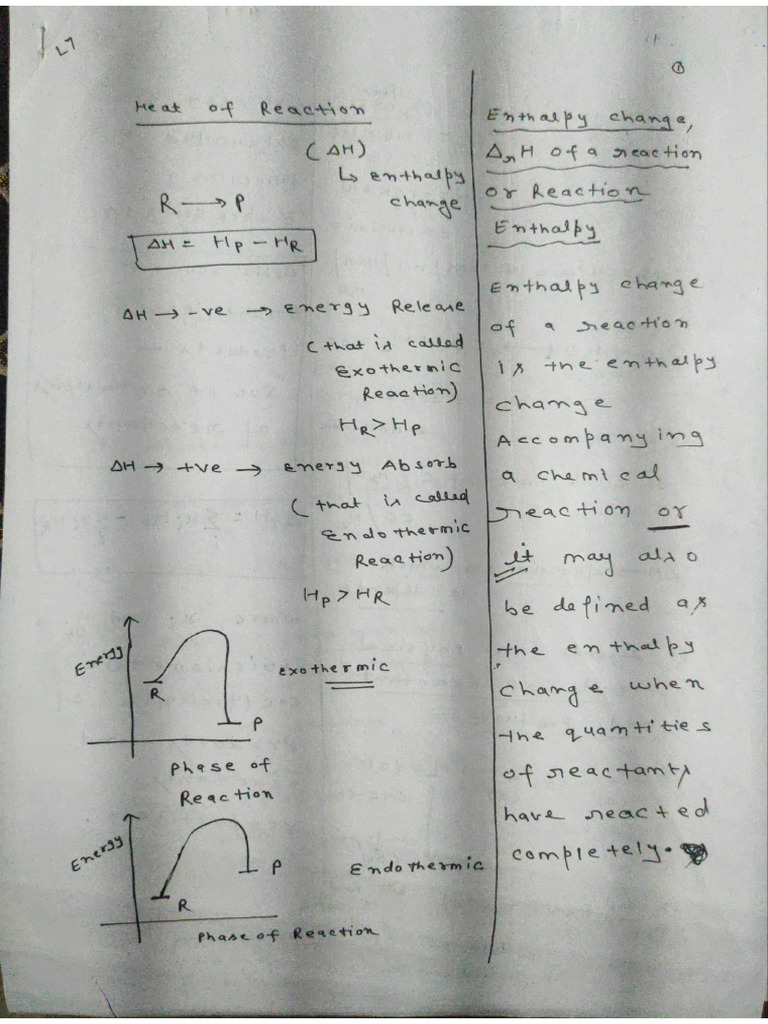 L7
①
Heat of Reaction
(ΔH)
↳ enthalpy
change
R ⟶ P
ΔH = HP - HR
ΔH → -ve → Energy Release
(that is called
Exothermic
Reaction)
HR > HP
ΔH → +ve → Energy Absorb
(that is called
Endothermic
Reaction)
HP > HR
Energy
R
P
exothermic
Phase of
Reaction
Energy
R
P
Endothermic
Phase of Reaction
Enthalpy change,
ΔrH of a reaction
or Reaction
Enthalpy
Enthalpy change
of a reaction
is the enthalpy
change
Accompanying
a chemical
reaction or
it may also
be defined as
the enthalpy
change when
the quantities
of reactants
have reacted
completely.